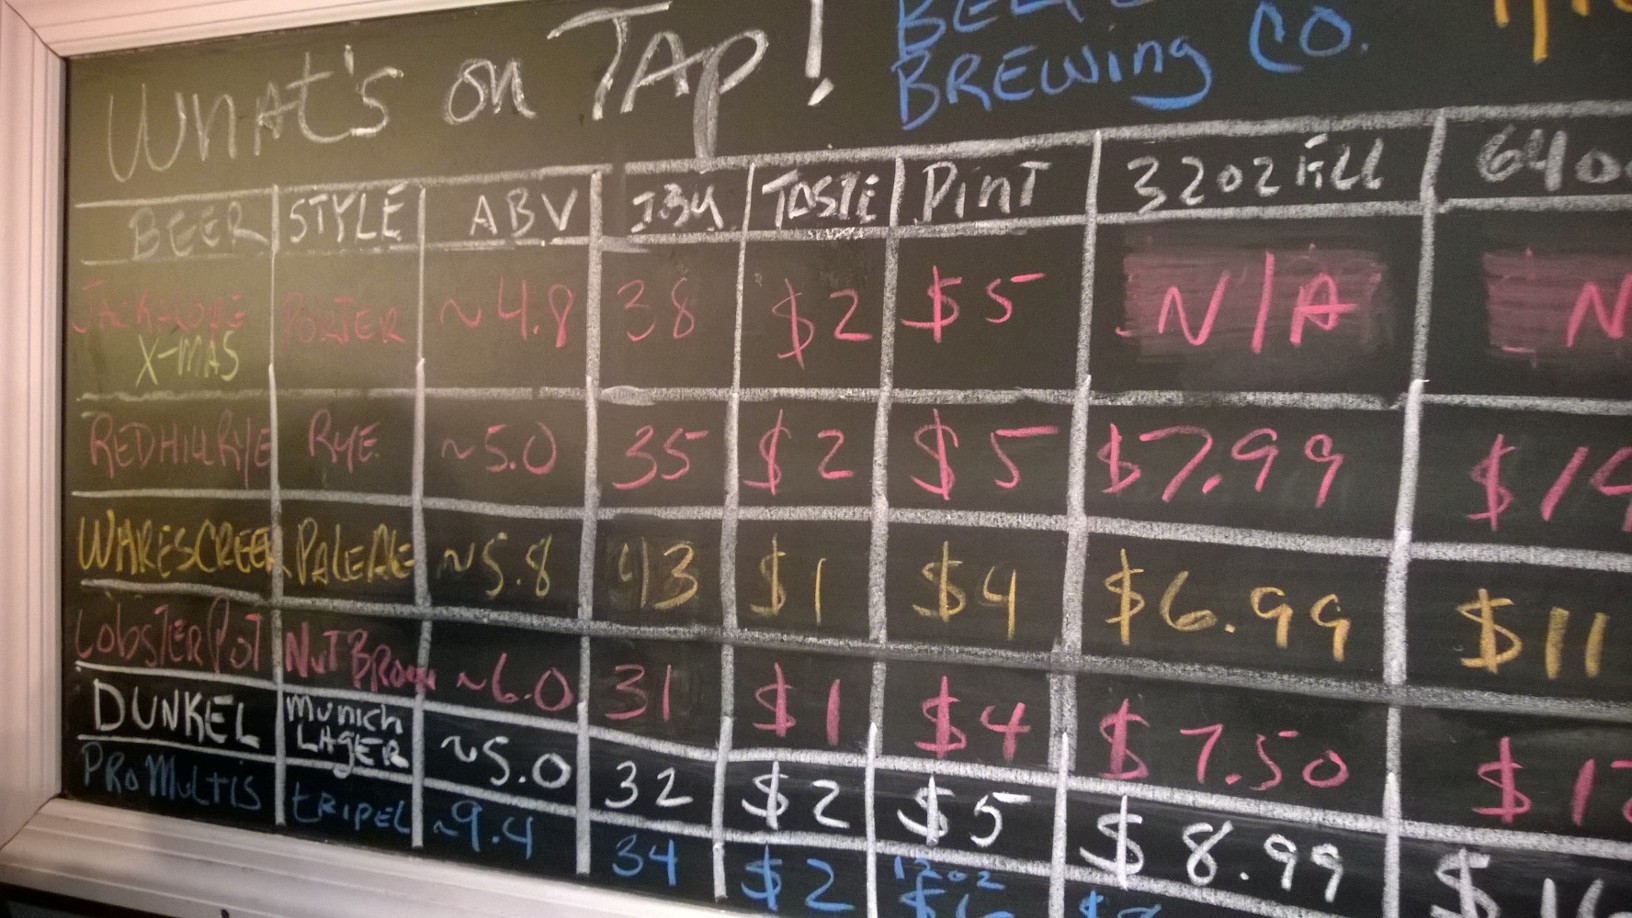 What's on Tap!
BREWing CO.
BEER STYLE ABV IBU TASTE Pint 32oz Fill
JACKALOPE PORTER ~4.8 38 $2 $5 N/A
X-MAS
REDHILLRYE RYE ~5.0 35 $2 $5 $7.99
WARESCREEK PALEALE ~5.8 43 $1 $4 $6.99 $11
LObSTER POT NUT BROWN ~6.0 31 $1 $4 $7.50
DUNKEL Munich LAGER ~5.0 32 $2 $5 $8.99
PRO MULTIS tRIPEL ~9.4 34 $2 12oz